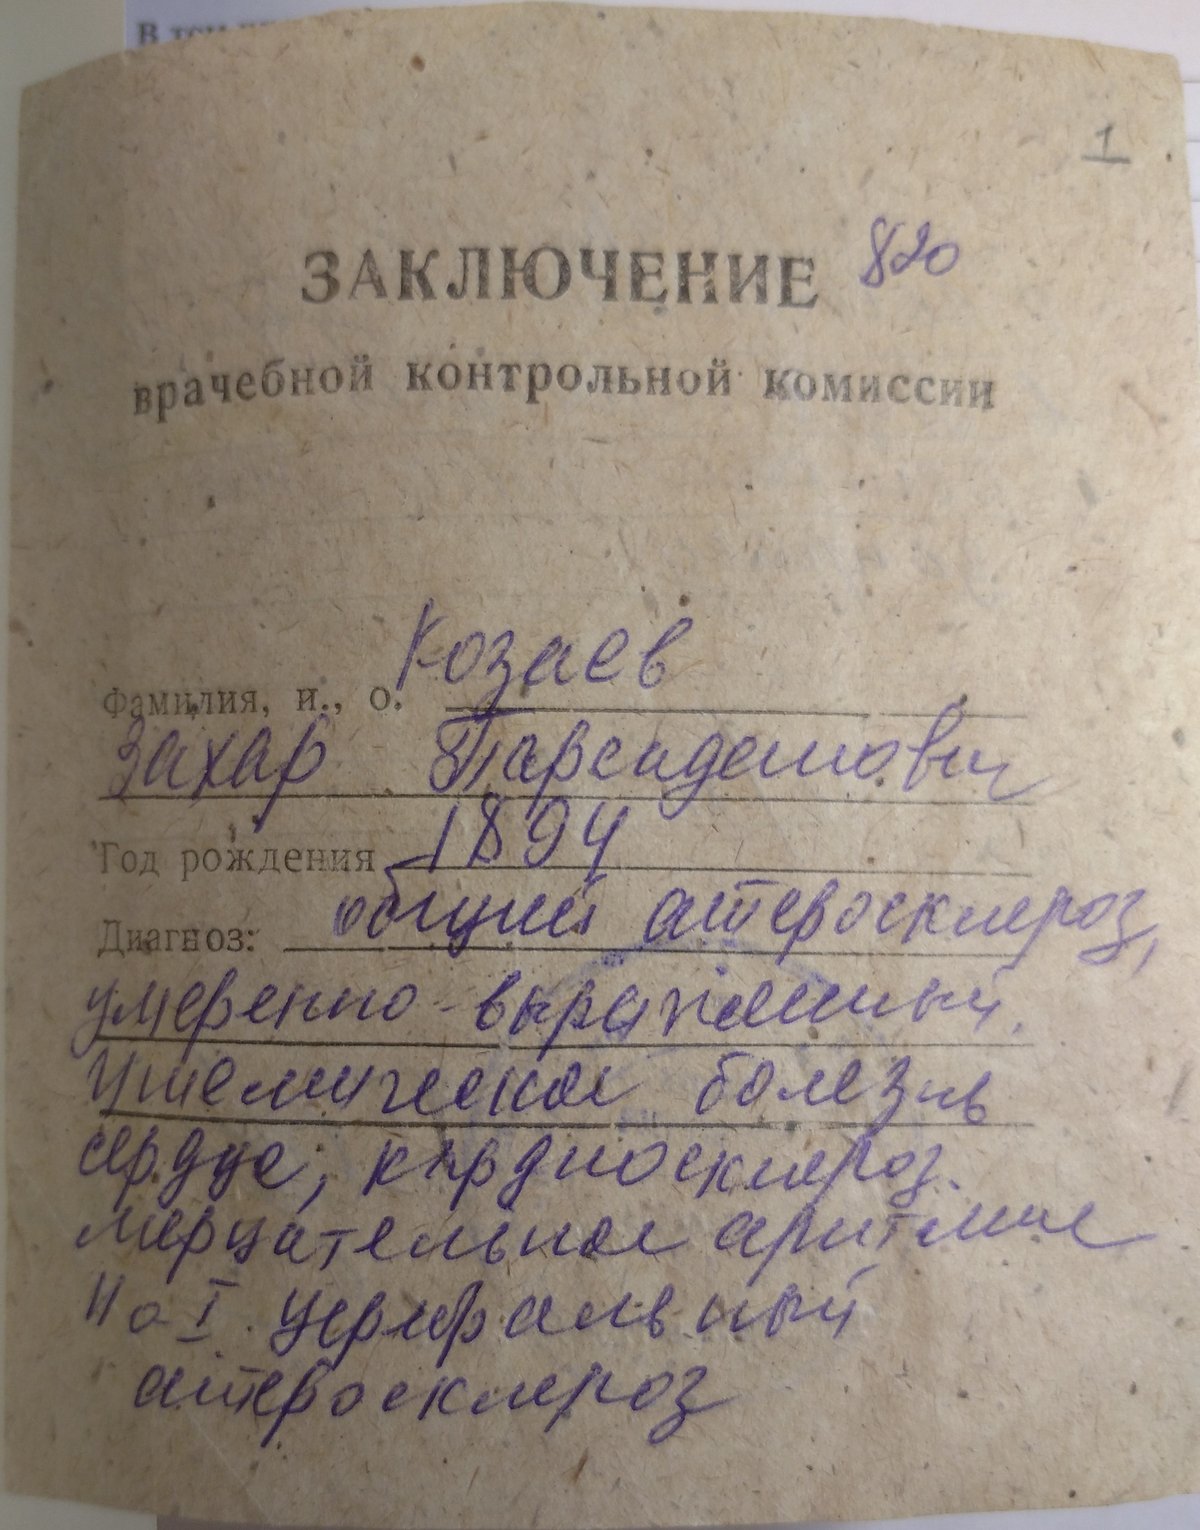 1
ЗАКЛЮЧЕНИЕ 820
врачебной контрольной комиссии
Фамилия, и., о. Козаев
Захар
Год рождения 1894
Диагноз: общий атеросклероз,
умеренно-выраженный.
Ишемическая болезнь
сердца, кардиосклероз.
мерцательная аритмия
Но I. церебральный
атеросклероз